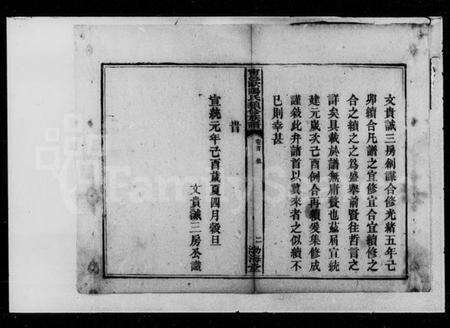 文貴誠三房創譜合修光緒五年己
卯續合凡譜之宜修宜合宜續修之
合之續之之為盛舉前賢往哲言之
詳矣具載於譜無庸贅也茲屆宣統
建元歲次己酉例合再續爰集修成
謹敘此弁諸首以冀來者之似續不
已則幸甚
時
宣統元年己酉歲夏四月穀旦
文貴誠三房公識
卷首
二